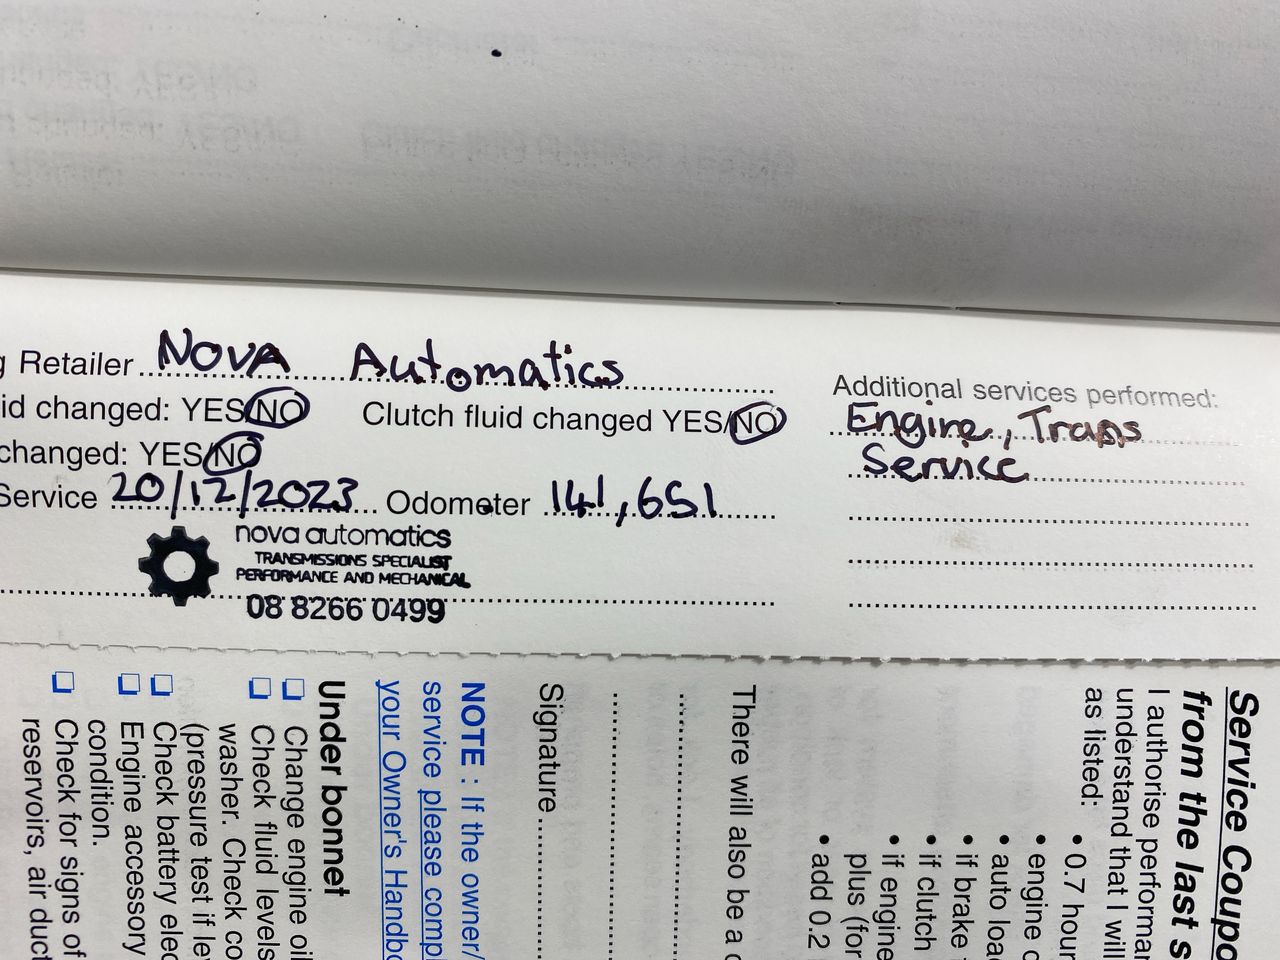 g Retailer NOVA Automatics
id changed: YES/NO Clutch fluid changed YES/NO
changed: YES/NO
Service 20/12/2023 Odometer 141,651
nova automatics
TRANSMISSIONS SPECIALIST
PERFORMANCE AND MECHANICAL
08 8266 0499
Additional services performed:
Engine, Trans
Service
Service Coupo
from the last s
I authorise performa
understand that I will
as listed:
• 0.7 hour
• engine o
• auto loa
• if brake
• if clutch
• if engine
plus (for
• add 0.2
There will also be a
Signature
NOTE : If the owner/
service please comp
your Owner's Handbo
Under bonnet
Change engine oil
Check fluid levels
washer. Check co
(pressure test if le
Check battery elec
Engine accessory
condition.
Check for signs of
reservoirs, air duct